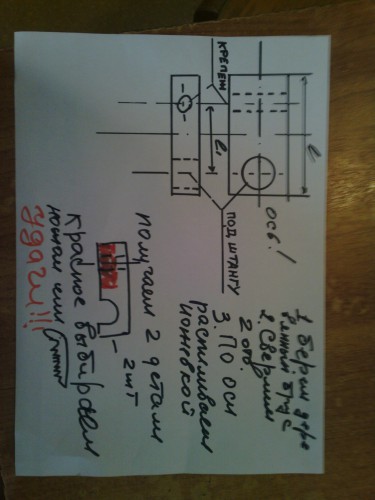 КРЕПЕЖ
ПОД ШТАНГУ
l
l₁
ось!
1. Берем дере
вянный брус
2. Сверлим
2 отв.
3. ПО ОСИ
распиливаем
ножовкой
получаем 2 детали
2 шт
Красное выбираем
ножом или
Удачи!!!